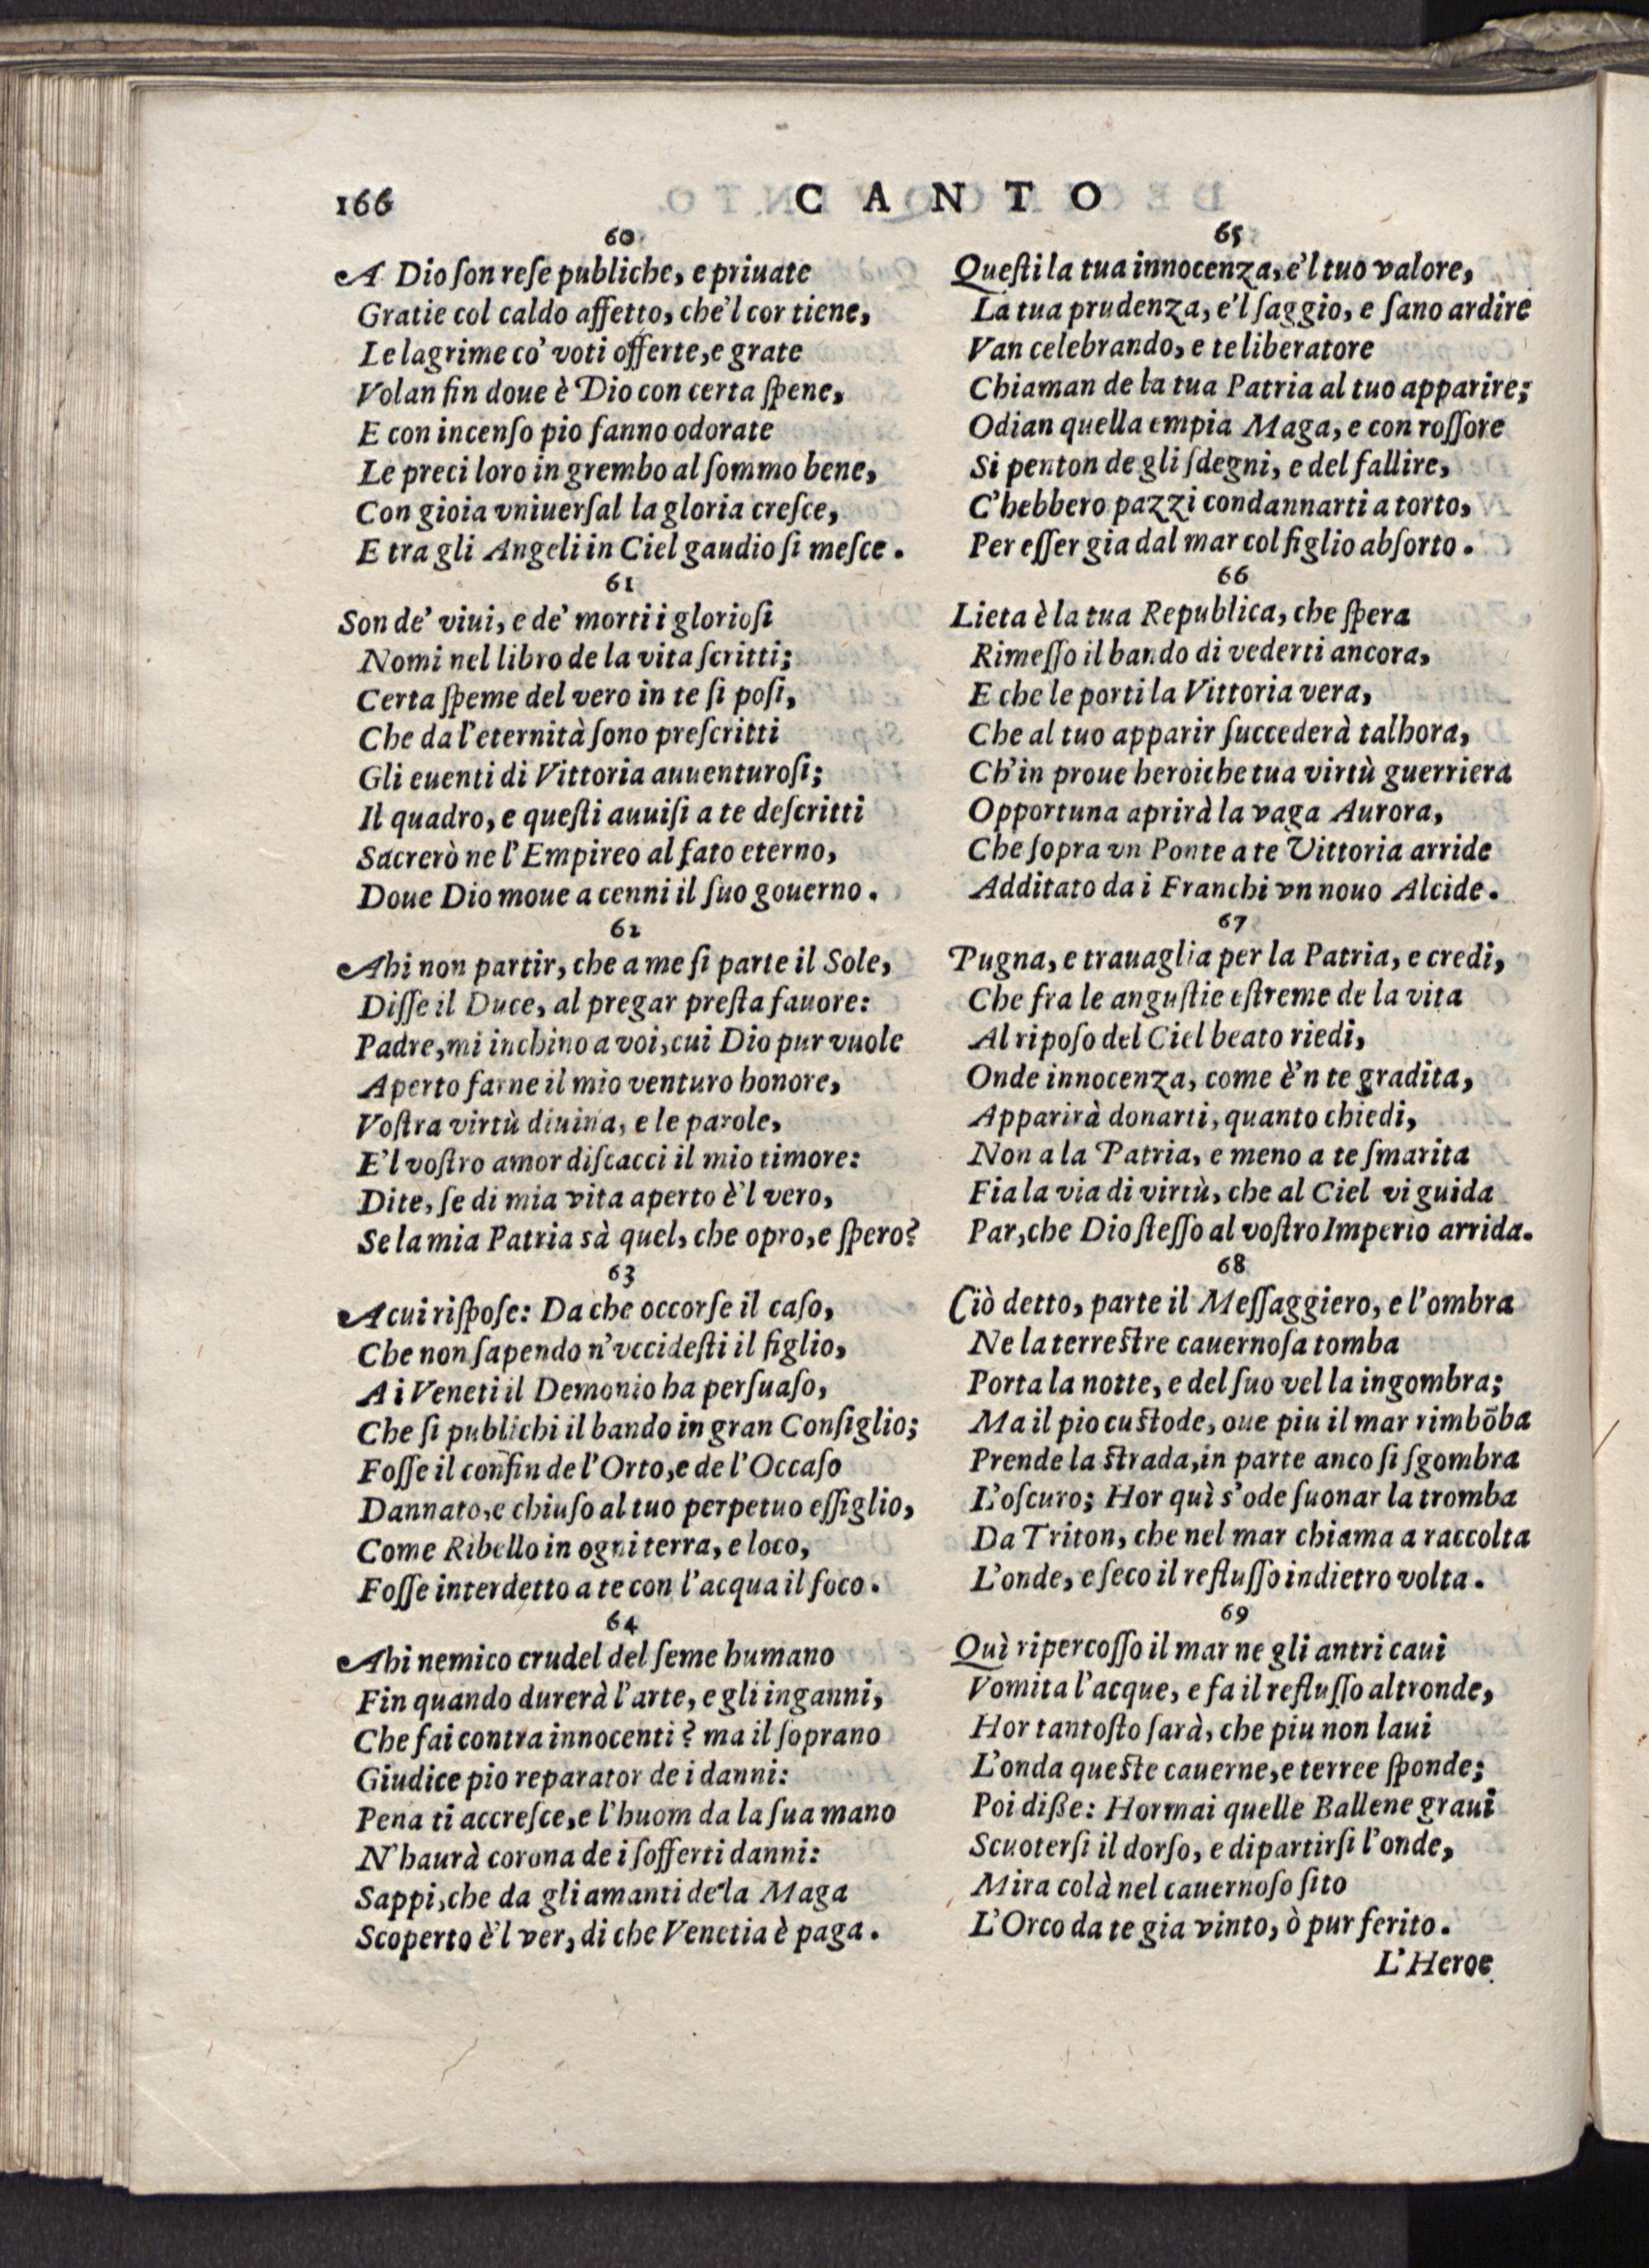 166
CANTO
60
A Dio ſon reſe publiche, e priuate
Gratie col caldo affetto, che'l cor tiene,
Le lagrime co' voti offerte, e grate
Volan fin doue è Dio con certa ſpene,
E con incenſo pio fanno odorate
Le preci loro in grembo al ſommo bene,
Con gioia vniuerſal la gloria creſce,
E tra gli Angeli in Ciel gaudio ſi meſce.
61
Son de' viui, e de' morti i glorioſi
Nomi nel libro de la vita ſcritti;
Certa ſpeme del vero in te ſi poſi,
Che da l'eternità ſono preſcritti
Gli euenti di Vittoria auuenturoſi;
Il quadro, e queſti auuiſi a te deſcritti
Sacrerò ne l'Empireo al fato eterno,
Doue Dio moue a cenni il ſuo gouerno.
62
Ahi non partir, che a me ſi parte il Sole,
Diſſe il Duce, al pregar preſta fauore:
Padre, mi inchino a voi, cui Dio pur vuole
Aperto farne il mio venturo honore,
Voſtra virtù diuina, e le parole,
E'l voſtro amor diſcacci il mio timore:
Dite, ſe di mia vita aperto è'l vero,
Se la mia Patria sà quel, che opro, e ſpero?
63
A cui riſpoſe: Da che occorſe il caſo,
Che non ſapendo n'vccideſti il figlio,
A i Veneti il Demonio ha perſuaſo,
Che ſi publichi il bando in gran Conſiglio;
Foſſe il confin de l'Orto, e de l'Occaſo
Dannato, e chiuſo al tuo perpetuo eſſiglio,
Come Ribello in ogni terra, e loco,
Foſſe interdetto a te con l'acqua il foco.
64
Ahi nemico crudel del ſeme humano
Fin quando durerà l'arte, e gli inganni,
Che fai contra innocenti? ma il ſoprano
Giudice pio reparator de i danni:
Pena ti accreſce, e l'huom da la ſua mano
N'haurà corona de i ſofferti danni:
Sappi, che da gli amanti de la Maga
Scoperto è'l ver, di che Venetia è paga.
65
Queſti la tua innocenza, e'l tuo valore,
La tua prudenza, e'l ſaggio, e ſano ardire
Van celebrando, e te liberatore
Chiaman de la tua Patria al tuo apparire;
Odian quella empia Maga, e con roſſore
Si penton de gli ſdegni, e del fallire,
C'hebbero pazzi condannarti a torto,
Per eſſer gia dal mar col figlio abſorto.
66
Lieta è la tua Republica, che ſpera
Rimeſſo il bando di vederti ancora,
E che le porti la Vittoria vera,
Che al tuo apparir ſuccederà talhora,
Ch'in proue heroiche tua virtù guerriera
Opportuna aprirà la vaga Aurora,
Che ſopra vn Ponte a te Vittoria arride
Additato da i Franchi vn nouo Alcide.
67
Pugna, e trauaglia per la Patria, e credi,
Che fra le anguſtie eſtreme de la vita
Al ripoſo del Ciel beato riedi,
Onde innocenza, come è'n te gradita,
Apparirà donarti, quanto chiedi,
Non a la Patria, e meno a te ſmarita
Fia la via di virtù, che al Ciel vi guida
Par, che Dio ſteſſo al voſtro Imperio arrida.
68
Ciò detto, parte il Meſſaggiero, e l'ombra
Ne la terreſtre cauernoſa tomba
Porta la notte, e del ſuo vel la ingombra;
Ma il pio cuſtode, oue piu il mar rimbõba
Prende la ſtrada, in parte anco ſi ſgombra
L'oſcuro; Hor quì s'ode ſuonar la tromba
Da Triton, che nel mar chiama a raccolta
L'onde, e ſeco il refluſſo indietro volta.
69
Quì ripercoſſo il mar ne gli antri caui
Vomita l'acque, e fa il refluſſo altronde,
Hor tantoſto ſarà, che piu non laui
L'onda queſte cauerne, e terree ſponde;
Poi diße: Hormai quelle Ballene graui
Scuoterſi il dorſo, e dipartirſi l'onde,
Mira colà nel cauernoſo ſito
L'Orco da te gia vinto, ò pur ferito.
L'Heroe